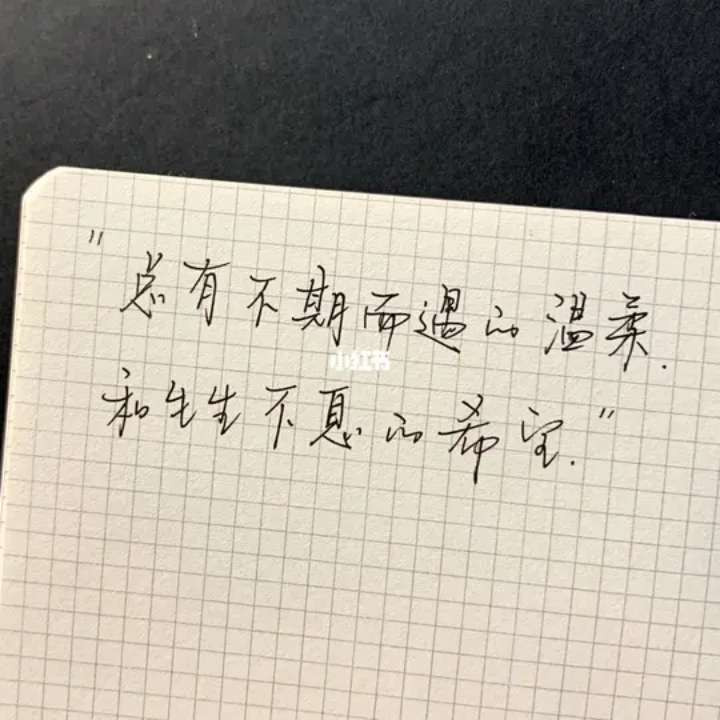 "总有不期而遇的温柔.
小红书
和生生不息的希望."